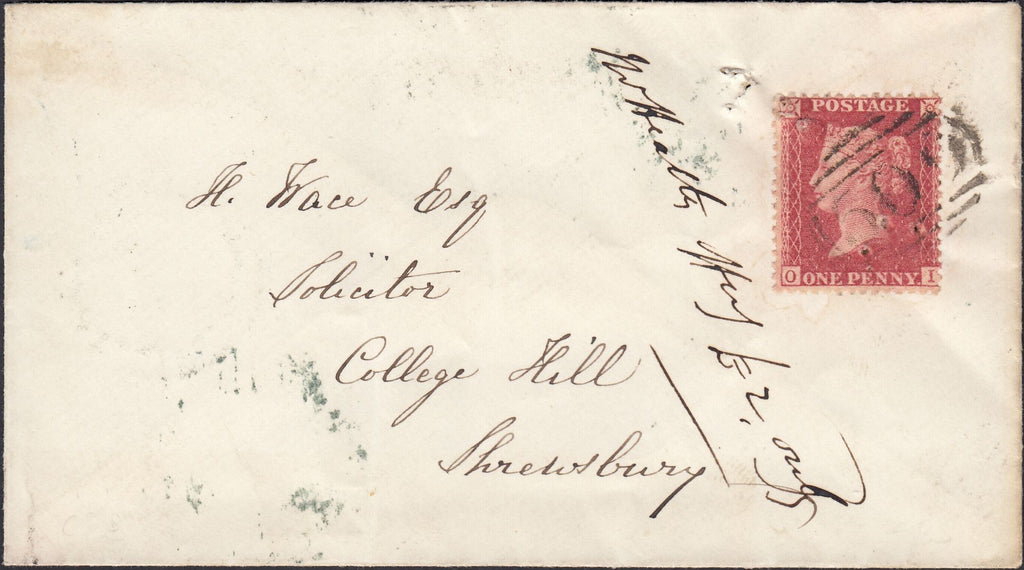 H. Wace Esq
Solicitor
College Hill
Shrewsbury
POSTAGE
O ONE PENNY. I